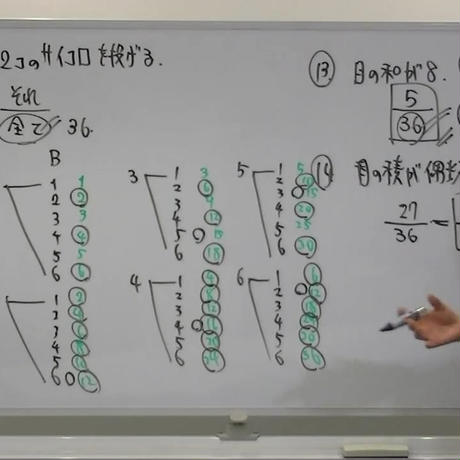 2コのサイコロを投げる.
それ
全て 36.
⑬ 目の和が8.
5
36
⑭ 目の積が偶
27
36 =
B
1 1
2 2
3 3
4 4
5 5
6 6
1 2
2 4
3 6
4 8
5 10
6 12
3
1 3
2 6
3 9
4 12
5 15
6 18
4
1 4
2 8
3 12
4 16
5 20
6 24
5
1 5
2 10
3 15
4 20
5 25
6 30
6
1 6
2 12
3 18
4 24
5 30
6 36